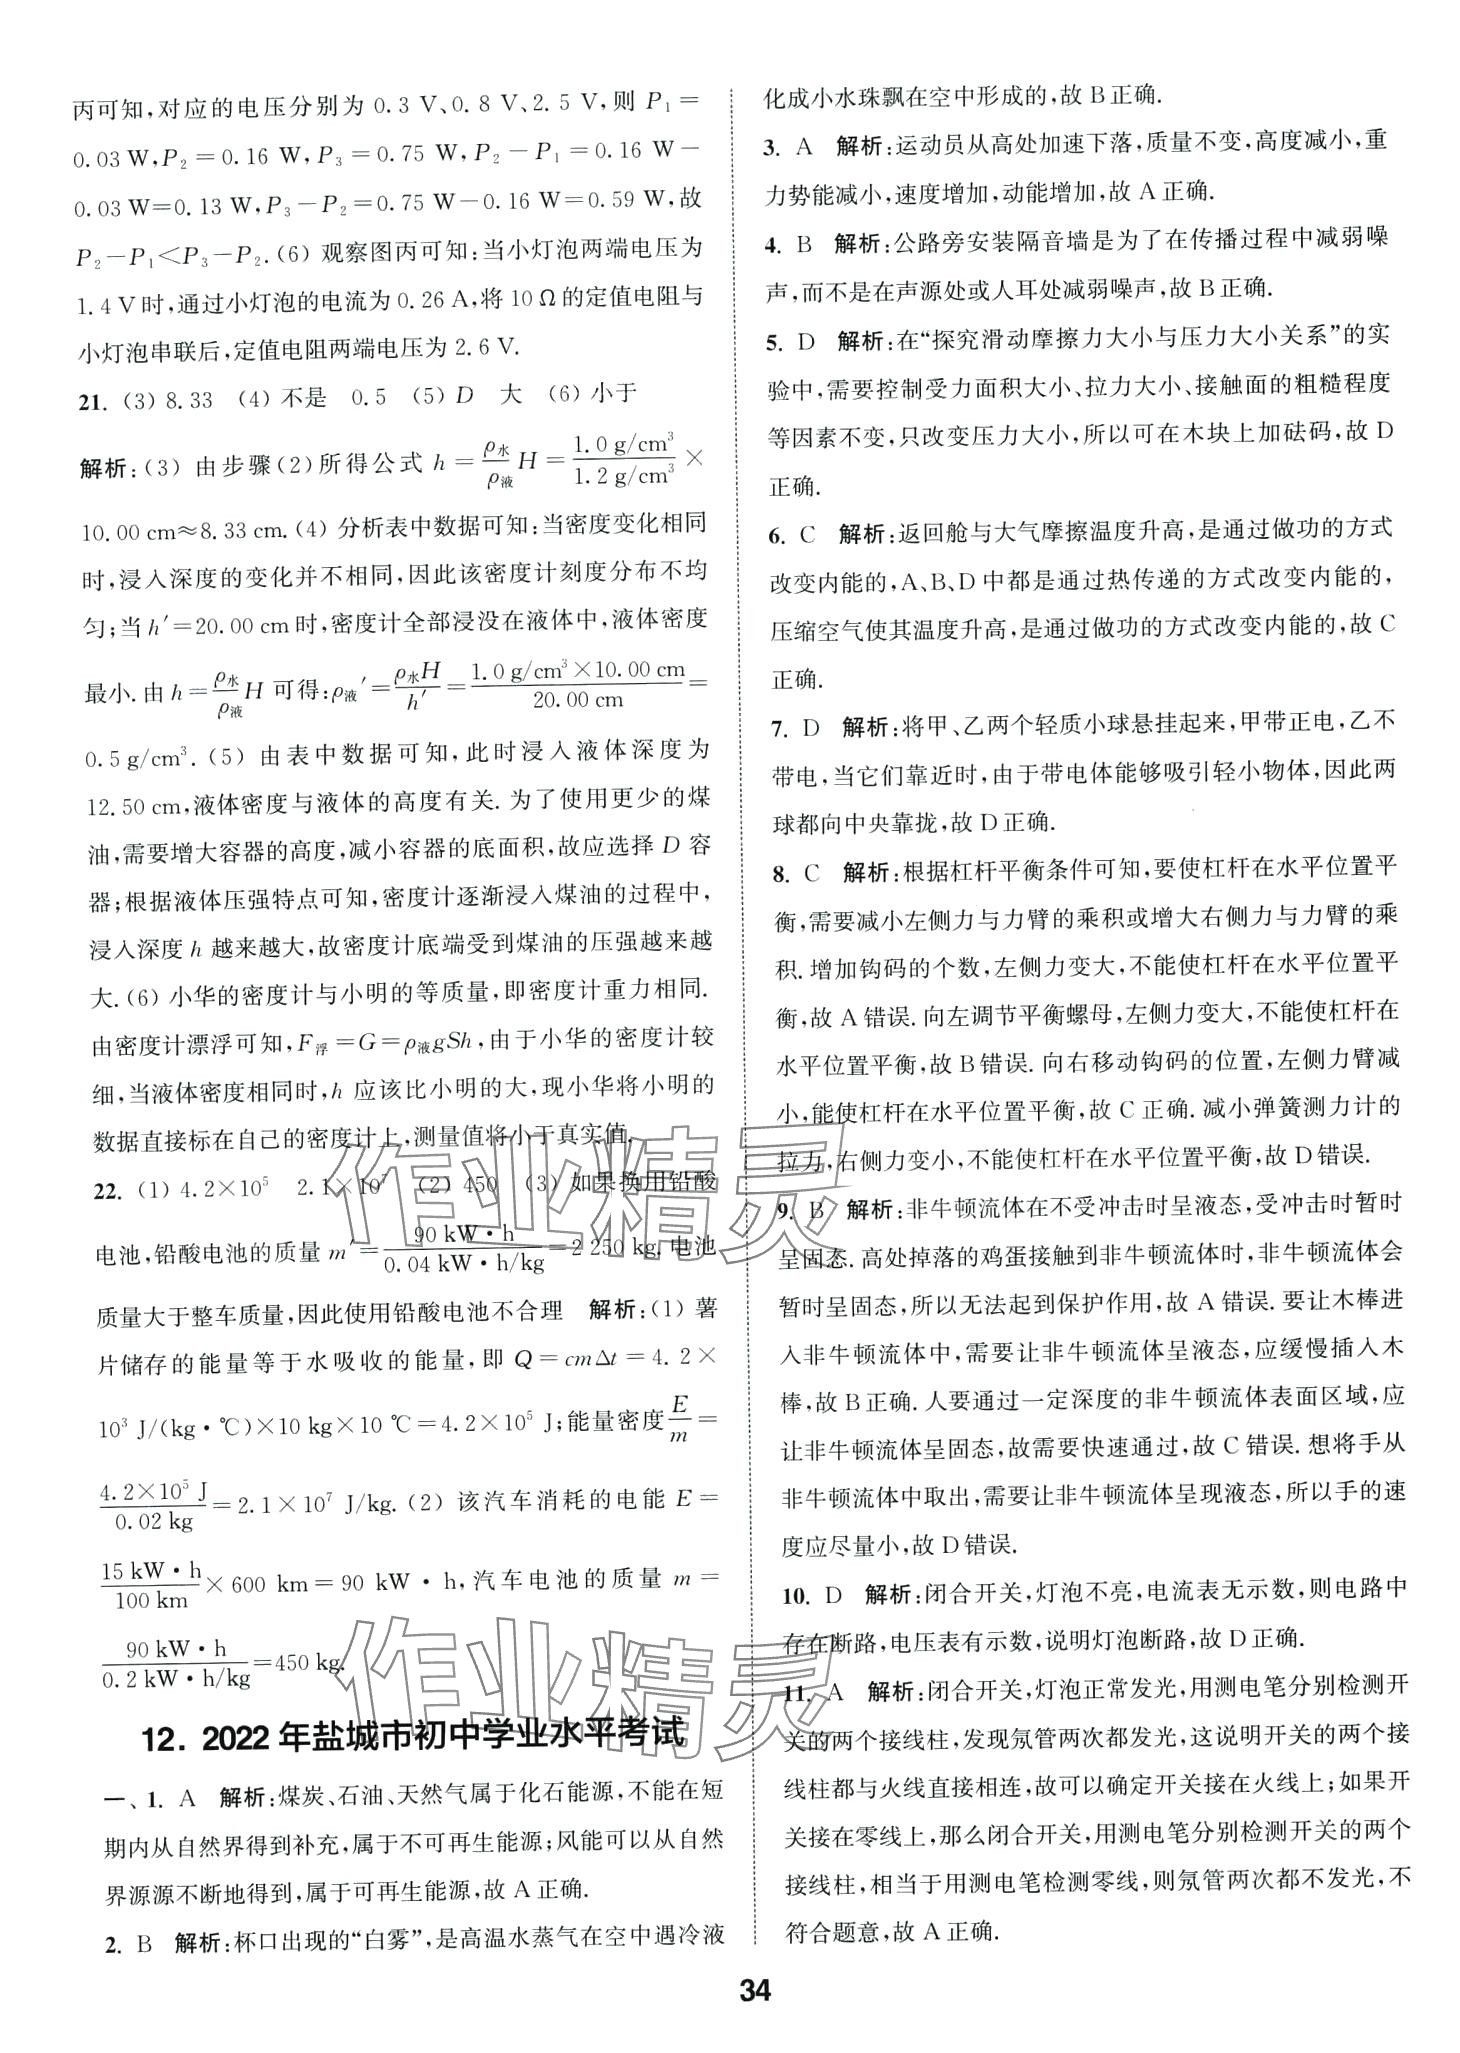 丙可知,对应的电压分别为 0.3 V、0.8 V、2.5 V,则 P₁=
0.03 W,P₂=0.16 W,P₃=0.75 W,P₂-P₁=0.16 W-
0.03 W=0.13 W,P₃-P₂=0.75 W-0.16 W=0.59 W,故
P₂-P₁<P₃-P₂.(6) 观察图丙可知:当小灯泡两端电压为
1.4 V时,通过小灯泡的电流为 0.26 A,将 10 Ω的定值电阻与
小灯泡串联后,定值电阻两端电压为 2.6 V.
21. (3) 8.33 (4) 不是 0.5 (5) D 大 (6) 小于
解析:(3) 由步骤(2)所得公式 h=ρ水/ρ液 H=1.0 g/cm³/1.2 g/cm³×
10.00 cm≈8.33 cm.(4) 分析表中数据可知:当密度变化相同
时,浸入深度的变化并不相同,因此该密度计刻度分布不均
匀;当 h′=20.00 cm时,密度计全部浸没在液体中,液体密度
最小.由 h=ρ水/ρ液 H 可得:ρ液′=ρ水H/h′=1.0 g/cm³×10.00 cm/20.00 cm=
0.5 g/cm³.(5) 由表中数据可知,此时浸入液体深度为
12.50 cm,液体密度与液体的高度有关.为了使用更少的煤
油,需要增大容器的高度,减小容器的底面积,故应选择 D 容
器;根据液体压强特点可知,密度计逐渐浸入煤油的过程中,
浸入深度 h 越来越大,故密度计底端受到煤油的压强越来越
大.(6) 小华的密度计与小明的等质量,即密度计重力相同.
由密度计漂浮可知,F浮=G=ρ液gSh,由于小华的密度计较
细,当液体密度相同时,h 应该比小明的大,现小华将小明的
数据直接标在自己的密度计上,测量值将小于真实值.
22. (1) 4.2×10⁵ 2.1×10⁷ (2) 450 (3) 如果换用铅酸
电池,铅酸电池的质量 m′=90 kW·h/0.04 kW·h/kg=2 250 kg.电池
质量大于整车质量,因此使用铅酸电池不合理 解析:(1) 薯
片储存的能量等于水吸收的能量,即 Q=cmΔt=4.2×
10³ J/(kg·℃)×10 kg×10 ℃=4.2×10⁵ J;能量密度E/m=
4.2×10⁵ J/0.02 kg=2.1×10⁷ J/kg.(2) 该汽车消耗的电能 E=
15 kW·h/100 km×600 km=90 kW·h,汽车电池的质量 m=
90 kW·h/0.2 kW·h/kg=450 kg.
12. 2022 年盐城市初中学业水平考试
一、1. A 解析:煤炭、石油、天然气属于化石能源,不能在短
期内从自然界得到补充,属于不可再生能源;风能可以从自然
界源源不断地得到,属于可再生能源,故 A 正确.
2. B 解析:杯口出现的“白雾”,是高温水蒸气在空中遇冷液
化成小水珠飘在空中形成的,故 B正确.
3. A 解析:运动员从高处加速下落,质量不变,高度减小,重
力势能减小,速度增加,动能增加,故 A 正确.
4. B 解析:公路旁安装隔音墙是为了在传播过程中减弱噪
声,而不是在声源处或人耳处减弱噪声,故 B正确.
5. D 解析:在“探究滑动摩擦力大小与压力大小关系”的实
验中,需要控制受力面积大小、拉力大小、接触面的粗糙程度
等因素不变,只改变压力大小,所以可在木块上加砝码,故 D
正确.
6. C 解析:返回舱与大气摩擦温度升高,是通过做功的方式
改变内能的,A、B、D 中都是通过热传递的方式改变内能的,
压缩空气使其温度升高,是通过做功的方式改变内能的,故 C
正确.
7. D 解析:将甲、乙两个轻质小球悬挂起来,甲带正电,乙不
带电,当它们靠近时,由于带电体能够吸引轻小物体,因此两
球都向中央靠拢,故 D正确.
8. C 解析:根据杠杆平衡条件可知,要使杠杆在水平位置平
衡,需要减小左侧力与力臂的乘积或增大右侧力与力臂的乘
积.增加钩码的个数,左侧力变大,不能使杠杆在水平位置平
衡,故 A 错误.向左调节平衡螺母,左侧力变大,不能使杠杆在
水平位置平衡,故 B错误.向右移动钩码的位置,左侧力臂减
小,能使杠杆在水平位置平衡,故 C正确.减小弹簧测力计的
拉力,右侧力变小,不能使杠杆在水平位置平衡,故 D错误.
9. B 解析:非牛顿流体在不受冲击时呈液态,受冲击时暂时
呈固态.高处掉落的鸡蛋接触到非牛顿流体时,非牛顿流体会
暂时呈固态,所以无法起到保护作用,故 A 错误.要让木棒进
入非牛顿流体中,需要让非牛顿流体呈液态,应缓慢插入木
棒,故 B正确.人要通过一定深度的非牛顿流体表面区域,应
让非牛顿流体呈固态,故需要快速通过,故 C 错误.想将手从
非牛顿流体中取出,需要让非牛顿流体呈现液态,所以手的速
度应尽量小,故 D错误.
10. D 解析:闭合开关,灯泡不亮,电流表无示数,则电路中
存在断路,电压表有示数,说明灯泡断路,故 D正确.
11. A 解析:闭合开关,灯泡正常发光,用测电笔分别检测开
关的两个接线柱,发现氖管两次都发光,这说明开关的两个接
线柱都与火线直接相连,故可以确定开关接在火线上;如果开
关接在零线上,那么闭合开关,用测电笔分别检测开关的两个
接线柱,相当于用测电笔检测零线,则氖管两次都不发光,不
符合题意,故 A 正确.
34
作业精灵
作业精灵